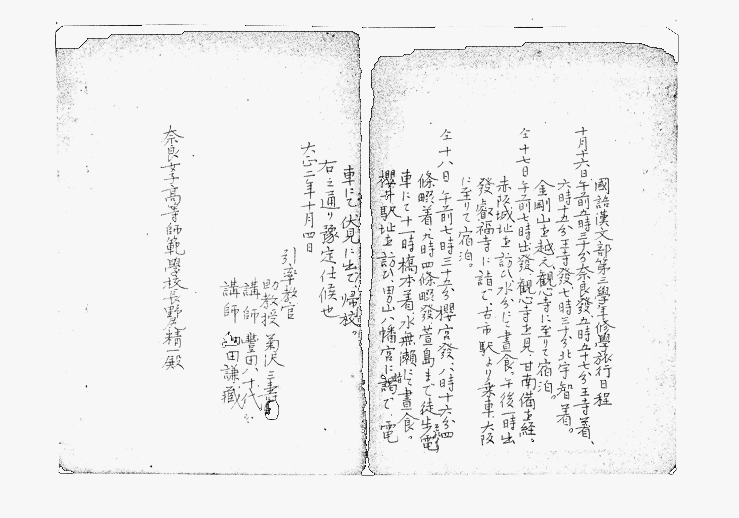 國語漢文部第三學年修學旅行日程
十月十六日午前五時三十分奈良發五時五十七分王寺着、
六時五分王寺發七時三十分北宇智着。
金剛山を越え觀心寺に至りて宿泊。
仝十七日午前七時出發、觀心寺を見、甘南備を経。
赤阪城址を訪ひ水分にて晝食。午後一時出
發叡福寺に詣で、古市駅より乗車大阪
に至りて宿泊。
仝十八日午前七時三十五分櫻宮發、八時十六分四
條畷着、九時四條畷發萱島まで徒歩電
車にて十一時橋本着、水無瀬にて晝食。
櫻井駅址を訪ひ、男山八幡宮に詣で、電
車にて伏見に出て帰校。
右之通り豫定仕候也
大正二年十月四日
引率教官
助教授 菊沢三壽
講師 豊田八十代
講師 田謙藏
奈良女子高等師範學校長野尻精一殿